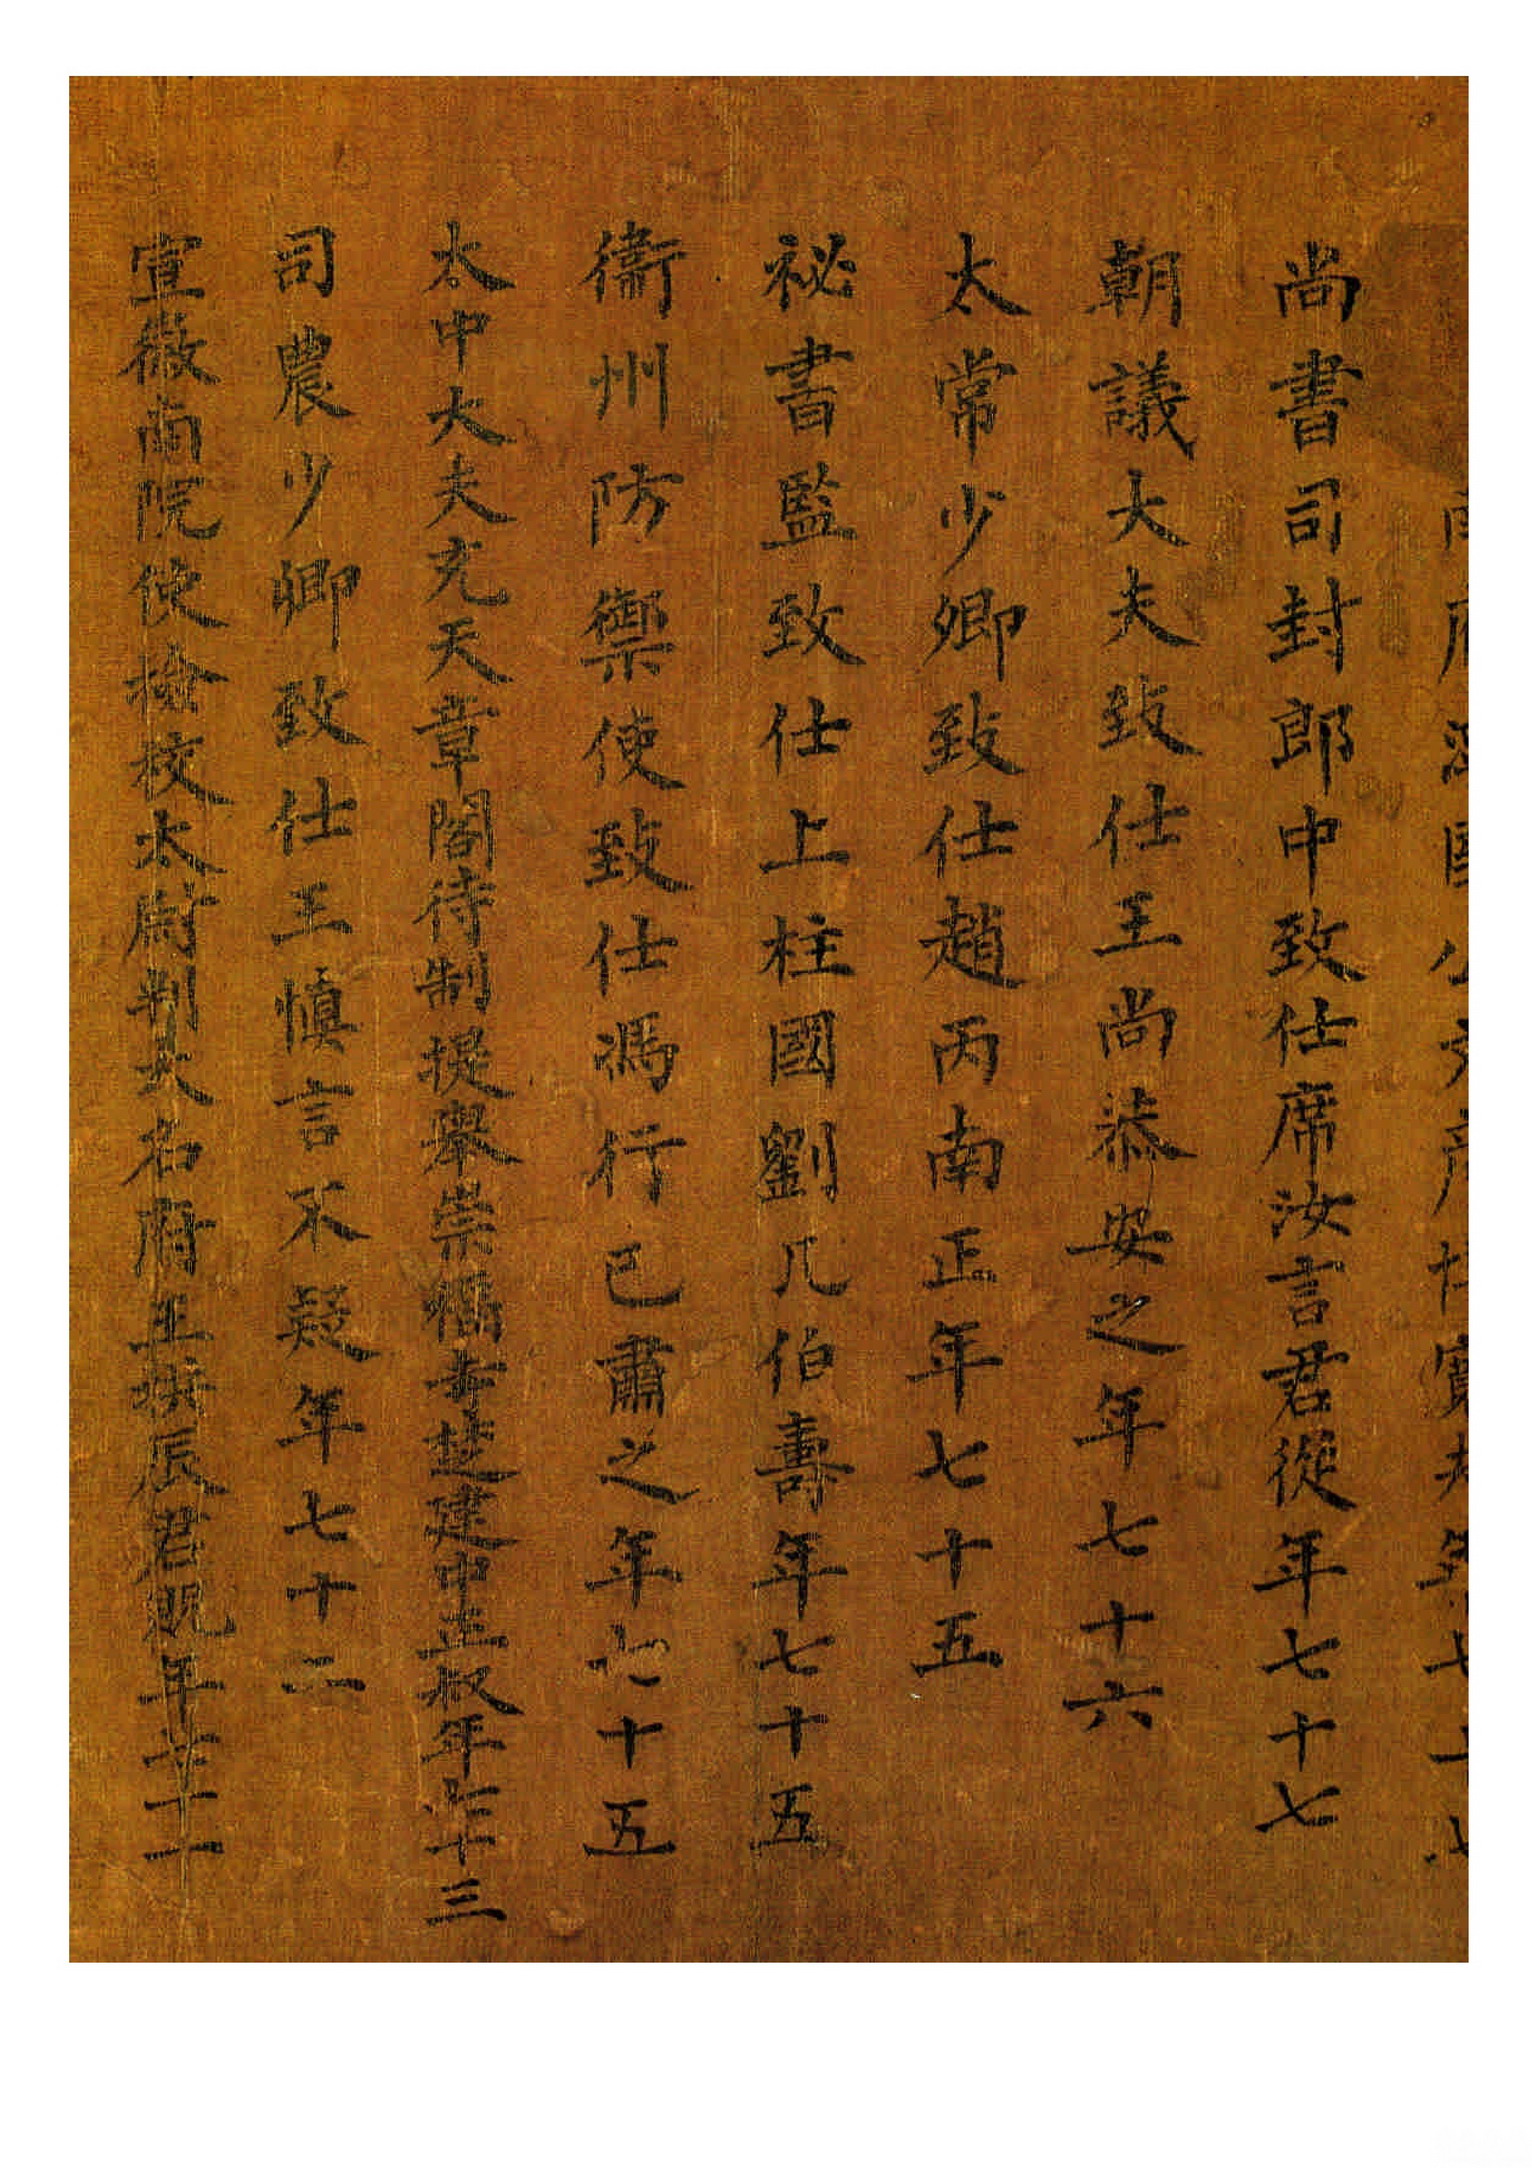 尚書司封郎中致仕席汝言君從年七十七
朝議大夫致仕王尚恭安之年七十六
太常少卿致仕趙丙南正年七十五
祕書監致仕上柱國劉几伯壽年七十五
衛州防禦使致仕馮行已肅之年七十五
太中大夫充天章閣待制提舉崇福寺楚建中正叔年七十三
司農少卿致仕王慎言不疑年七十二
宣徽南院使檢校太尉判大名府王拱辰君貺年七十一